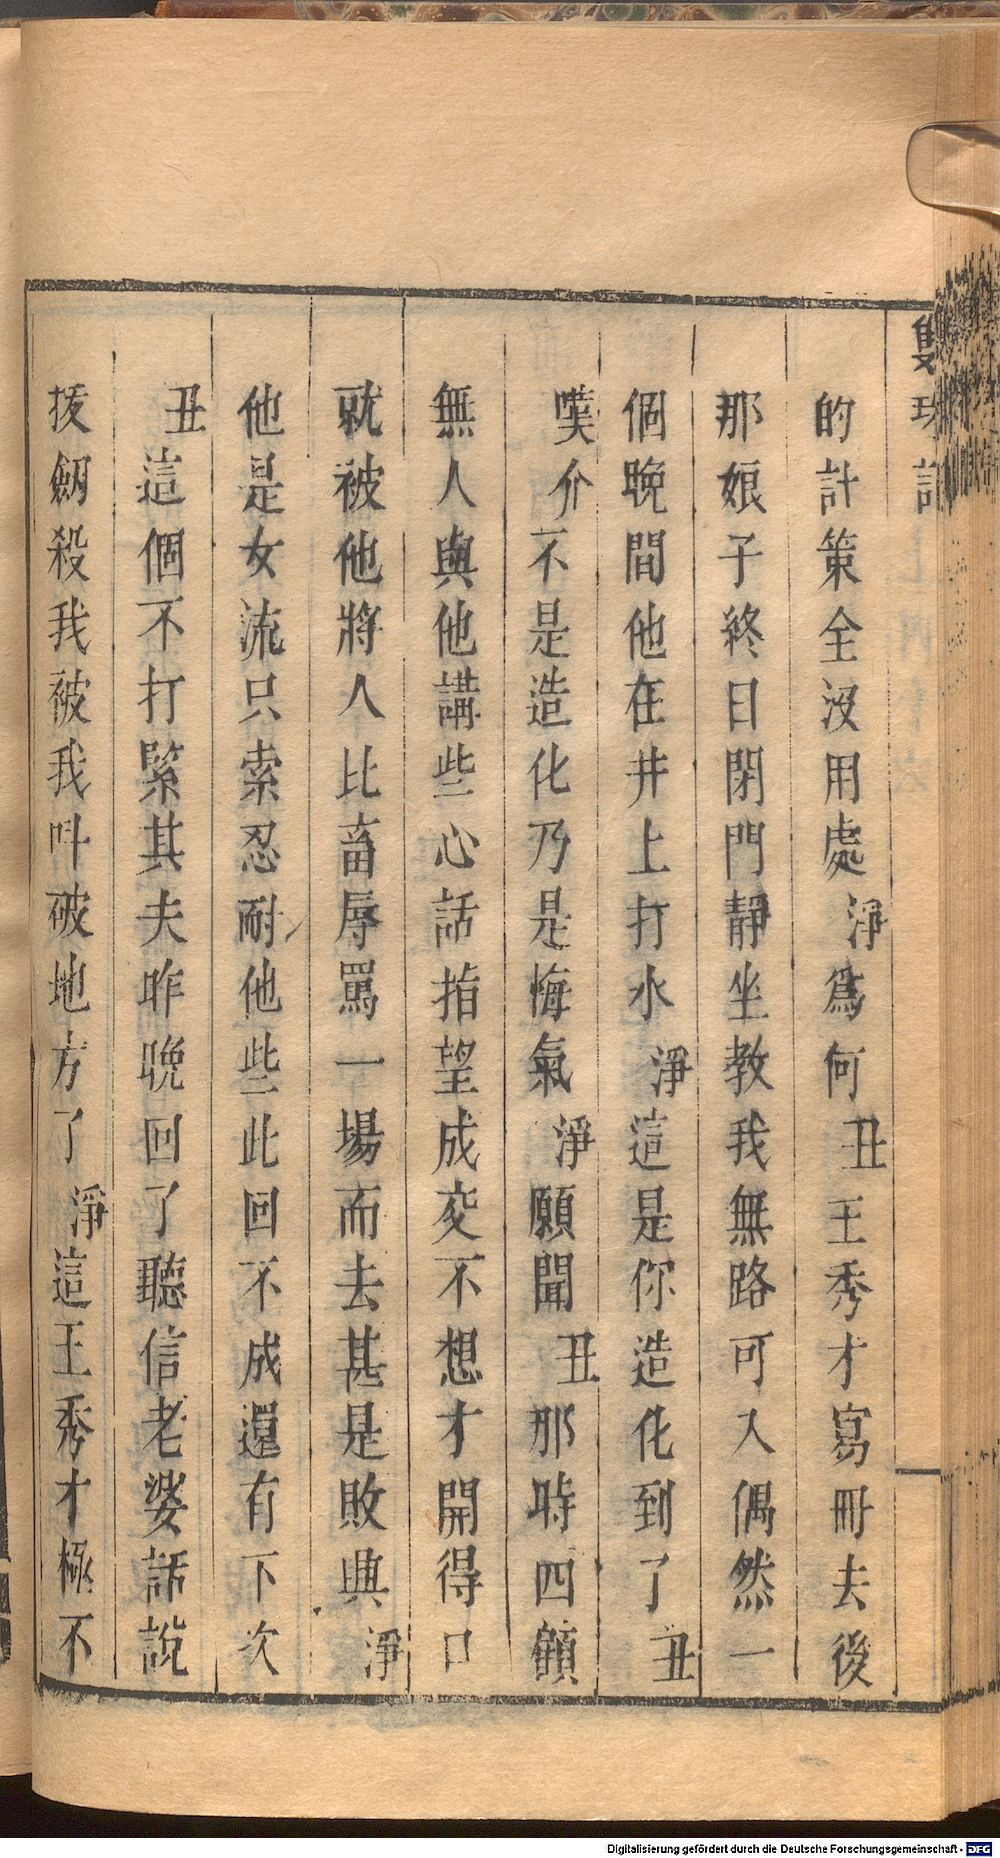 雙珠記
的計策全沒用處淨爲何丑王秀才寫冊去後
那娘子終日閉門靜坐教我無路可入偶然一
個晚間他在井上打水淨這是你造化到了丑
嘆介不是造化乃是悔氣淨願聞丑那時四顧
無人與他講些心話指望成交不想才開得口
就被他將人比畜辱罵一場而去甚是敗興淨
他是女流只索忍耐他些此回不成還有下次
丑這個不打緊其夫昨晚回了聽信老婆話說
拔劒殺我被我呌破地方了淨這王秀才極不
Digitalisierung gefördert durch die Deutsche Forschungsgemeinschaft - DFG